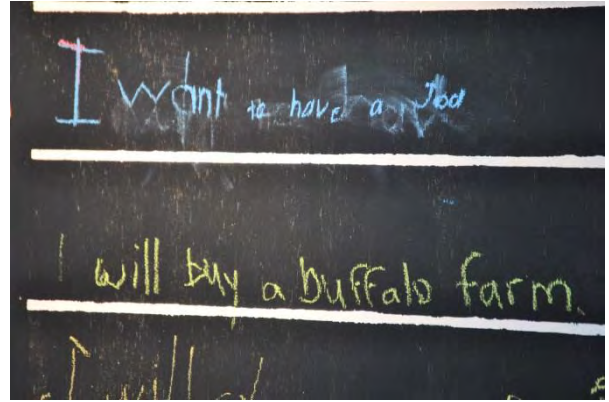 I want to have a
I will buy a buffalo farm.
I will